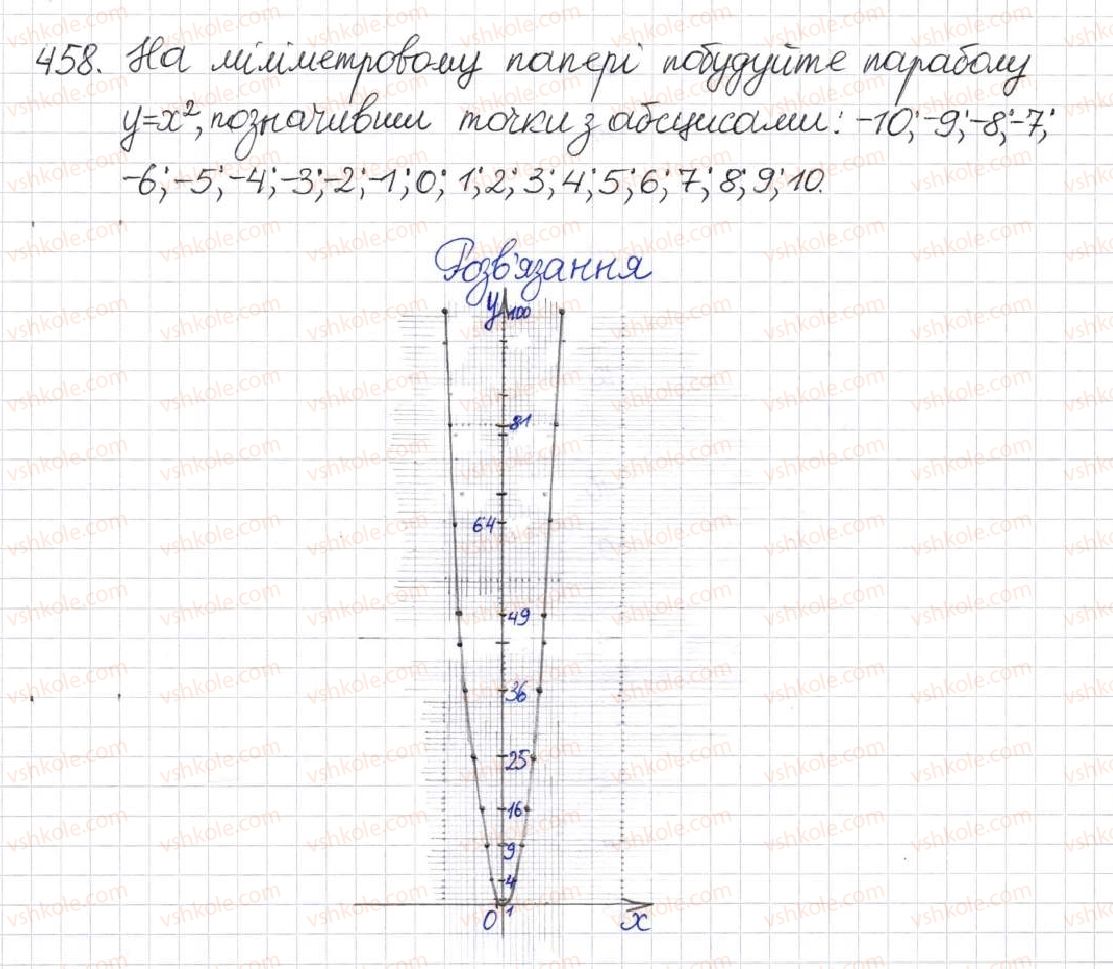 458. На міліметровому папері побудуйте параболу
y=x², позначивши точки з абсцисами: -10; -9; -8; -7;
-6; -5; -4; -3; -2; -1; 0; 1; 2; 3; 4; 5; 6; 7; 8; 9; 10.
Розв'язання
y
100
81
64
49
36
25
16
9
4
0 1
x
vshkole.com